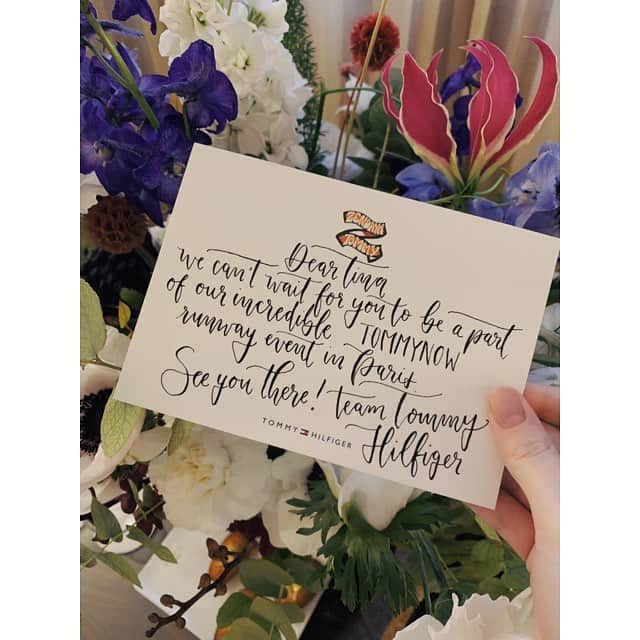 ZENDAYA
TOMMY
Dear tina
we can't wait for you to be a part
of our incredible TOMMYNOW
runway event in Paris
See you there! team tommy
Hilfiger
TOMMY HILFIGER